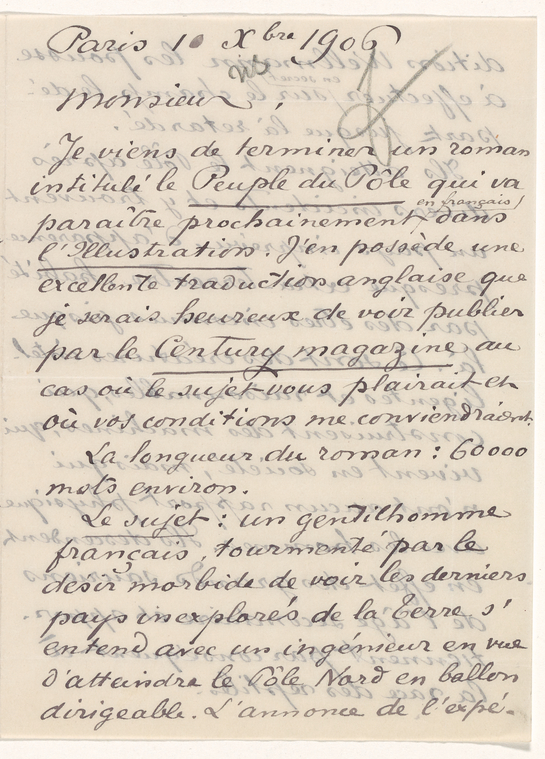 Paris 10 Xbre 1906
Monsieur,
Je viens de terminer un roman
intitulé le Peuple du Pôle qui va
(en français)
paraître prochainement dans
l'Illustration. J'en possède une
excellente traduction anglaise que
je serais heureux de voir publier
par le Century magazine au
cas où le sujet vous plairait et
où vos conditions me conviendraient.
La longueur du roman : 60000
mots environ.
Le sujet : un gentilhomme
français, tourmenté par le
désir morbide de voir les derniers
pays inexplorés de la terre s'
entend avec un ingénieur en vue
d'atteindre le Pôle Nord en ballon
dirigeable. L'annonce de l'expé-